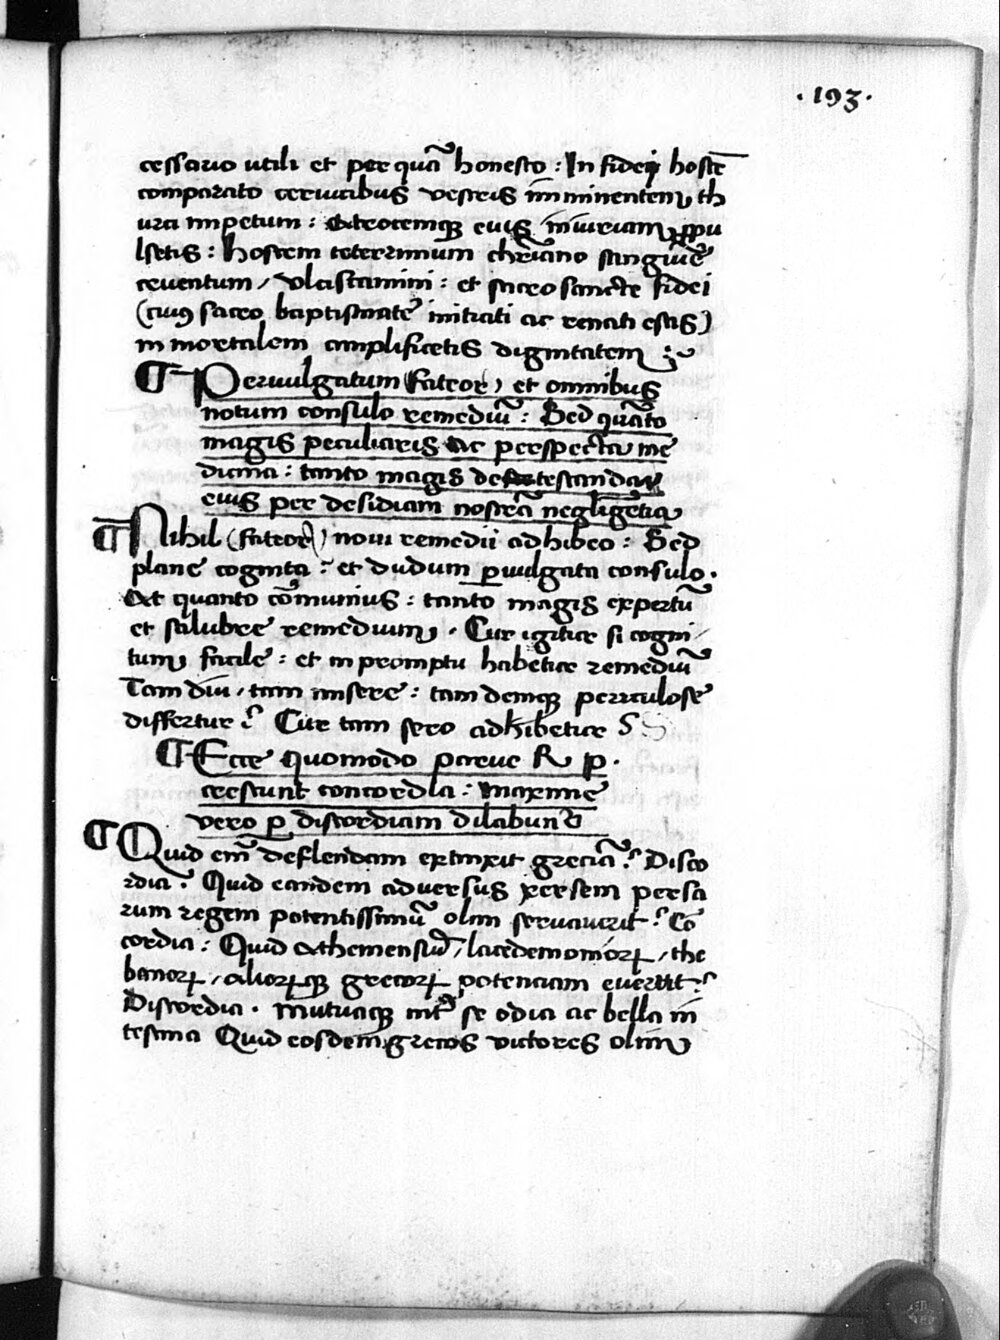 . 193 .
cessario utili et per quā honesto : In fidei hostē
comparato cervicibus vestris īminentem th
urci impetum : Atrotemq; eius īiuriam ꝓpu
lsetis : hostem teterrimum chr̄iano sanguīe
cruentum / Ulciscamini : et sacro sancte fidei
(cuiꝰ sacro baptismate initiati ac renati estis)
in mortalem amplificetis dignitatem
¶ Pervulgatum (fateor) et omnibus
notum consulo remediū : Sed quāto
magis peculiaris ac perspecta me
dicina : tanto magis detestanda
eius per desidiam nostrā negligētia
¶ Nihil (fateor) novi remedii adhibeo : Sed
plane cognita : et dudum ꝑvulgata consulo .
At quanto cōmunius : tanto magis expertū
et salubre remedium . Cur igitur si cogni
tum facile : et in promptu habetur remediū
Tam diu / tam misere : tam demq; periculose
differtur ? Cur tam sero adhibetur ?
¶ Ecce quomodo parvae R p .
crescunt concordia : Maxime
vero ꝑ discordiam dilabunt̄
¶ Quid em̄ deflendam extinxit greciā ? Disco
rdia . Quid eandem adversus xersem persa
rum regem potentissimū olim servaverit ? Cō
cordia : Quid Atheniensiū / lacedemonioꝝ / the
banoꝝ / alioꝝq; grecoꝝ potenciam evertit ?
Discordia . Mutuaq; int̄ se odia ac bella in
testina Quid eosdem grecos victores olim